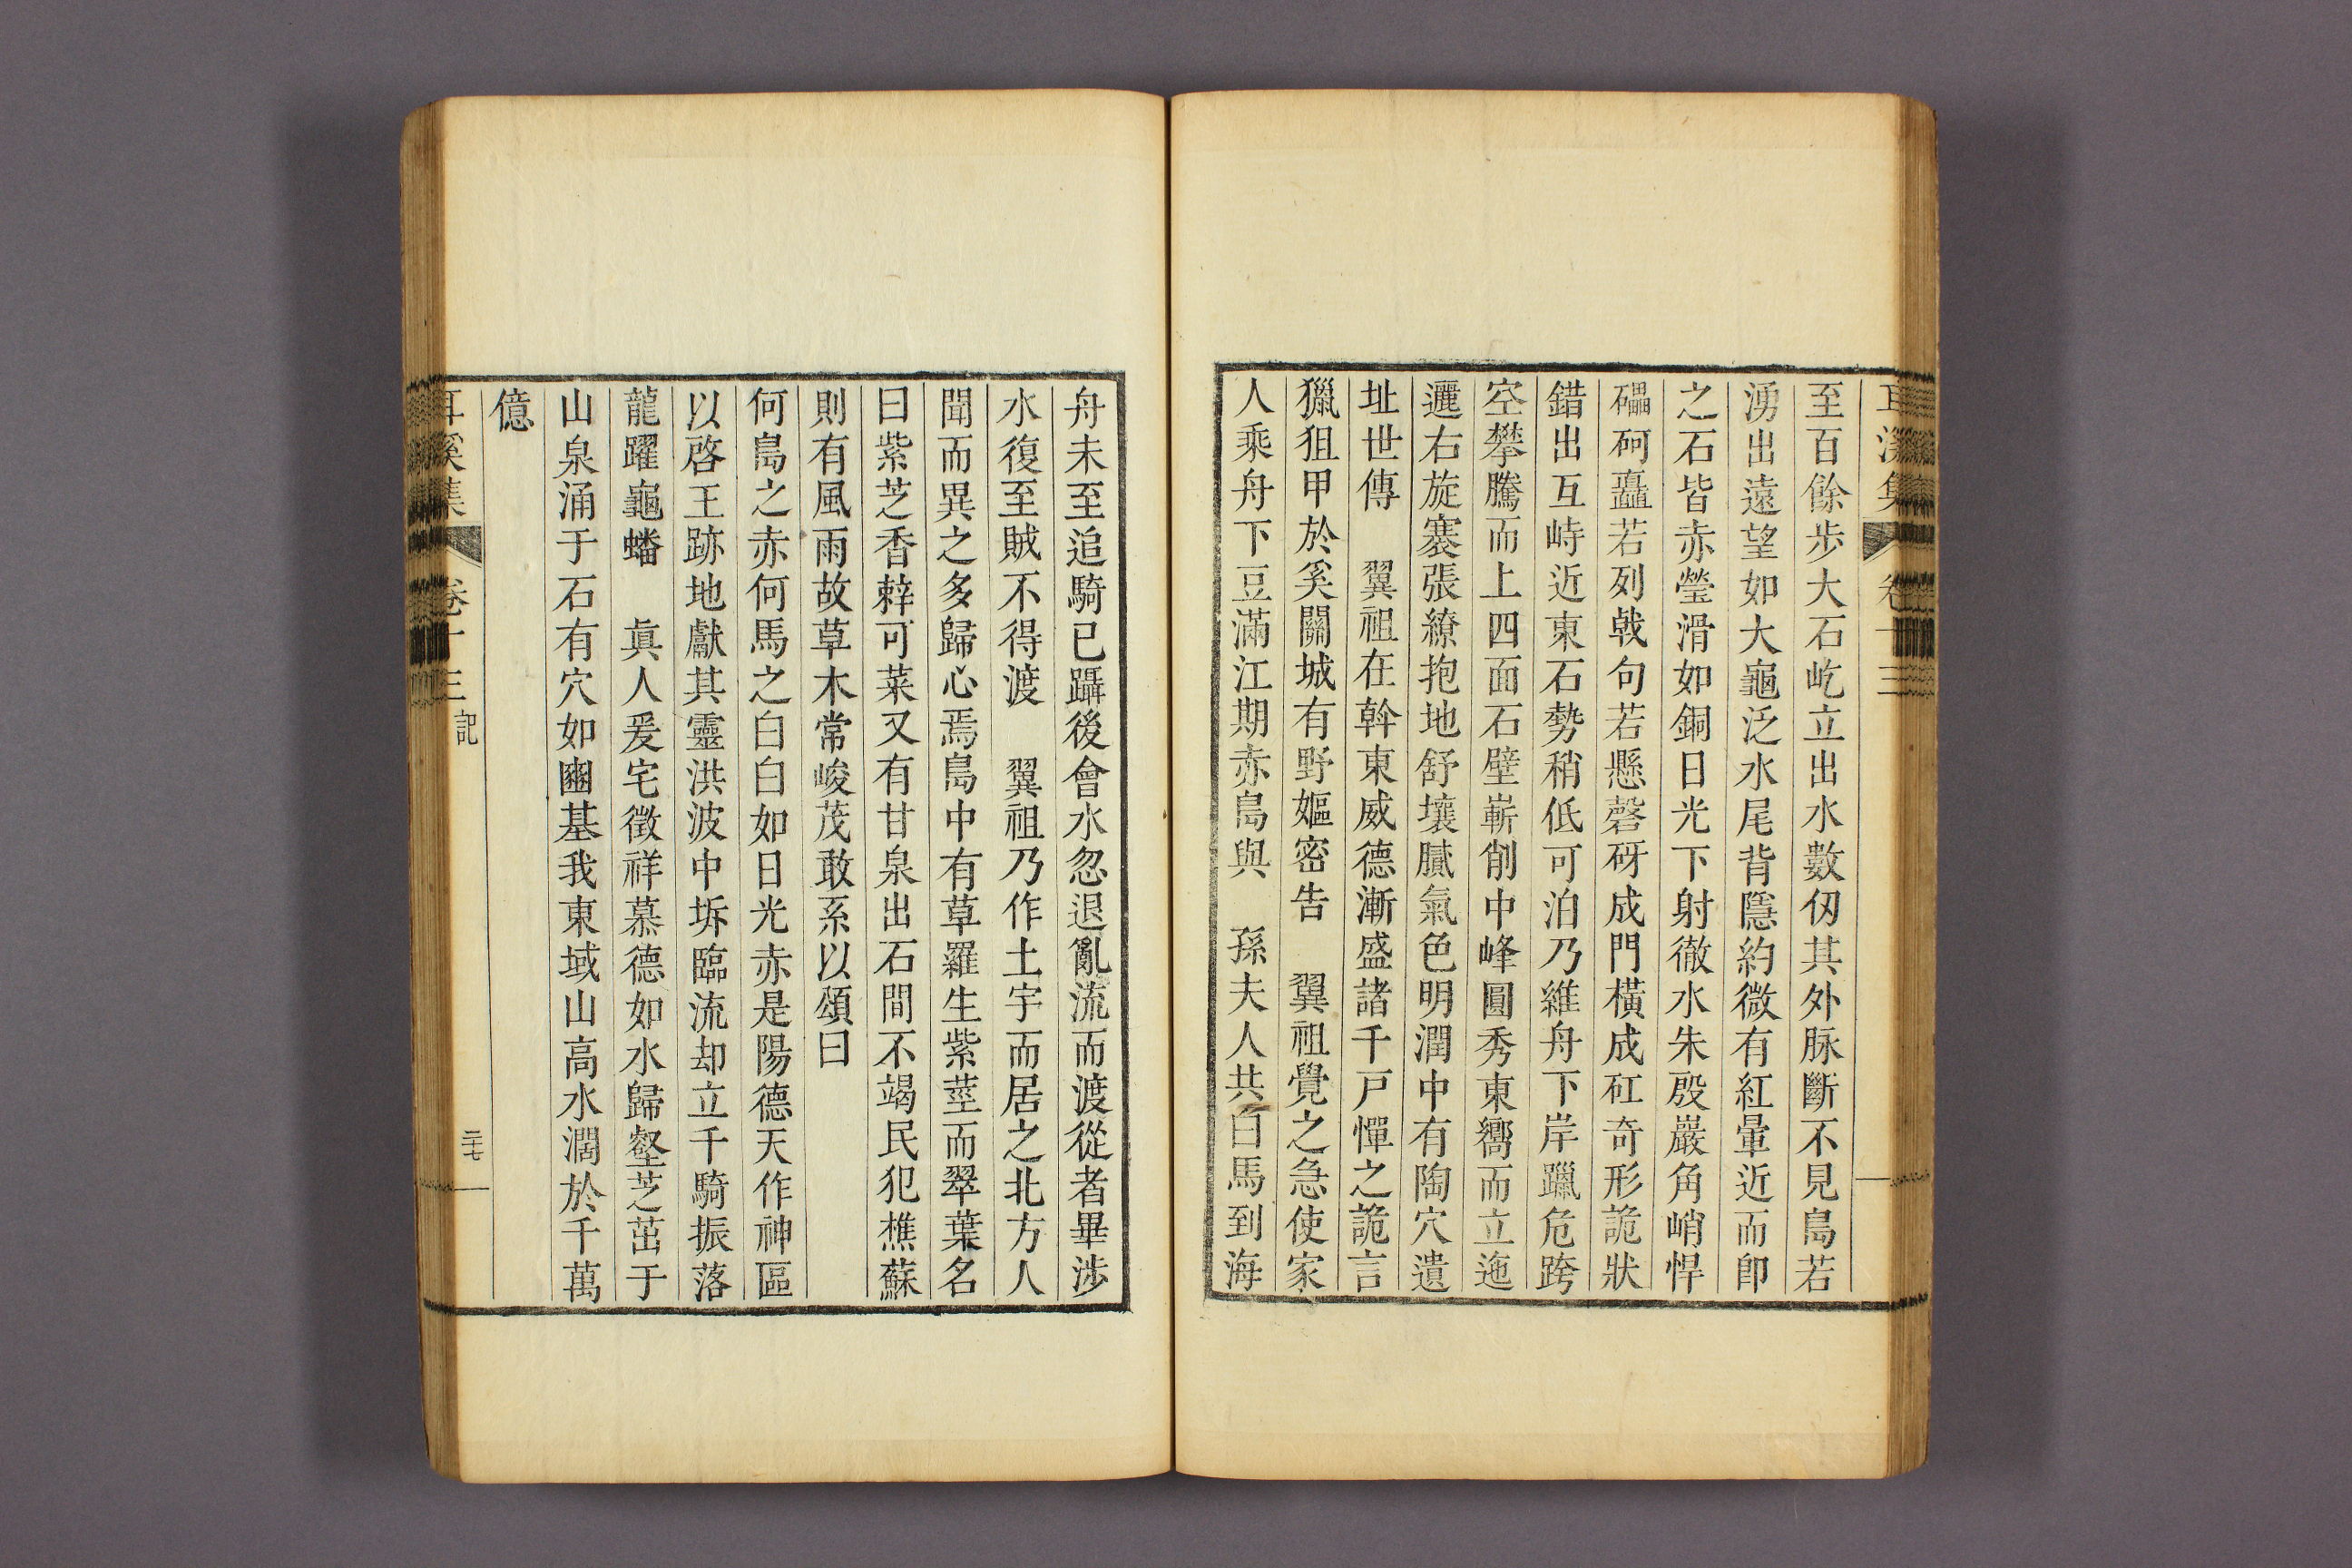 耳溪集 卷十三
至百餘步大石屹立出水數仞其外脉斷不見島若
湧出遠望如大龜泛水尾背隱約微有紅暈近而卽
之石皆赤瑩滑如銅日光下射徹水朱殷巖角峭悍
礧砢矗若列戟句若懸磬砑成門橫成矼奇形詭狀
錯出互峙近東石勢稍低可泊乃維舟下岸躐危跨
空攀騰而上四面石壁嶄削中峰圓秀東嚮而立迤
邐右旋褰張繚抱地舒壤膩氣色明潤中有陶穴遺
址世傳 翼祖在斡東威德漸盛諸千戶憚之詭言
獵狙甲於奚關城有野嫗密告 翼祖覺之急使家
人乘舟下豆滿江期赤島與 孫夫人共白馬到海
舟未至追騎已躡後會水忽退亂流而渡從者畢涉
水復至賊不得渡 翼祖乃作土宇而居之北方人
聞而異之多歸心焉島中有草羅生紫莖而翠葉名
曰紫芝香辣可菜又有甘泉出石間不竭民犯樵蘇
則有風雨故草木常峻茂敢系以頌曰
何島之赤何馬之白白如日光赤是陽德天作神區
以啓王跡地獻其靈洪波中坼臨流却立千騎振落
龍躍龜蟠 眞人爰宅徵祥慕德如水歸壑芝茁于
山泉涌于石有穴如豳基我東域山高水濶於千萬
億
耳溪集 卷十三 記 二十七